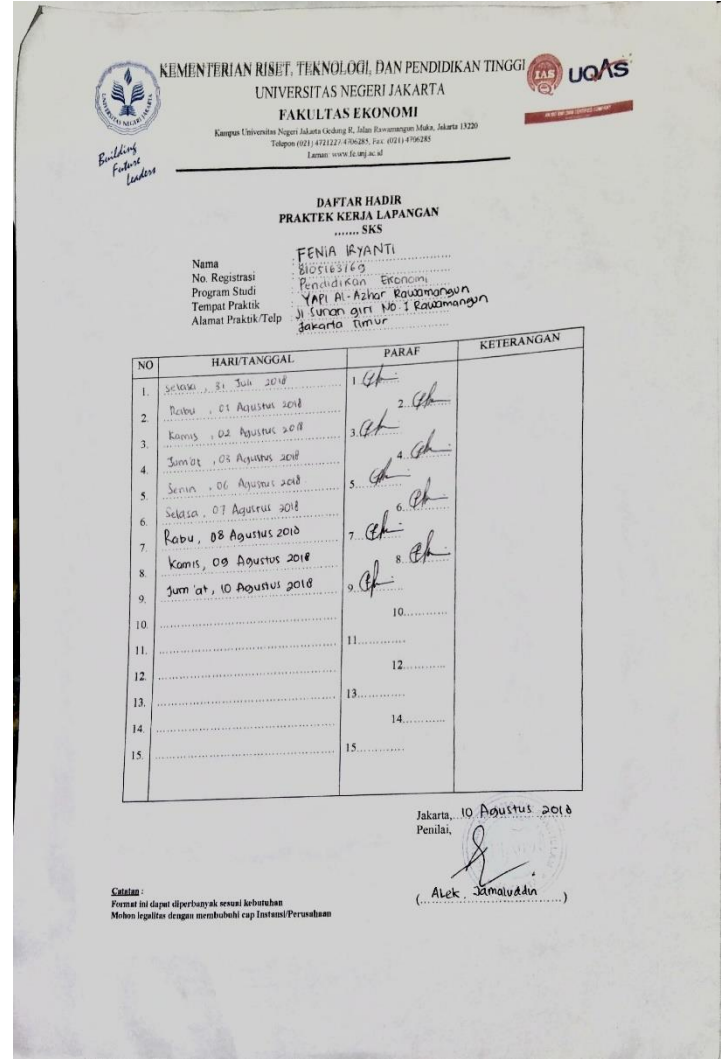 KEMENTERIAN RISET, TEKNOLOGI, DAN PENDIDIKAN TINGGI
UNIVERSITAS NEGERI JAKARTA
FAKULTAS EKONOMI
Kampus Universitas Negeri Jakarta Gedung R, Jalan Rawamangun Muka, Jakarta 13220
Telepon (021) 4721227/4706285, Fax: (021) 4706285
Laman: www.fe.unj.ac.id
UNIVERSITAS NEGERI JAKARTA
Building
Future
Leaders
IAS
UQAS
DAFTAR HADIR
PRAKTEK KERJA LAPANGAN
....... SKS
Nama : FENIA IRYANTI
No. Registrasi : 8105163169
Program Studi : Pendidikan Ekonomi
Tempat Praktik : YAPI Al-Azhar Rawamangun
Alamat Praktik/Telp : Jl Sunan giri No.1 Rawamangun
Jakarta Timur
NO HARI/TANGGAL PARAF KETERANGAN
1. Selasa, 31 Juli 2018 1.
2. Rabu, 01 Agustus 2018 2.
3. Kamis, 02 Agustus 2018 3.
4. Jum'at, 03 Agustus 2018 4.
5. Senin, 06 Agustus 2018 5.
6. Selasa, 07 Agustus 2018 6.
7. Rabu, 08 Agustus 2018 7.
8. Kamis, 09 Agustus 2018 8.
9. Jum'at, 10 Agustus 2018 9.
10. 10.
11. 11.
12. 12.
13. 13.
14. 14.
15. 15.
Jakarta, 10 Agustus 2018
Penilai,
( Alek. Jamaluddin )
Catatan :
Format ini dapat diperbanyak sesuai kebutuhan
Mohon legalitas dengan membubuhi cap Instansi/Perusahaan